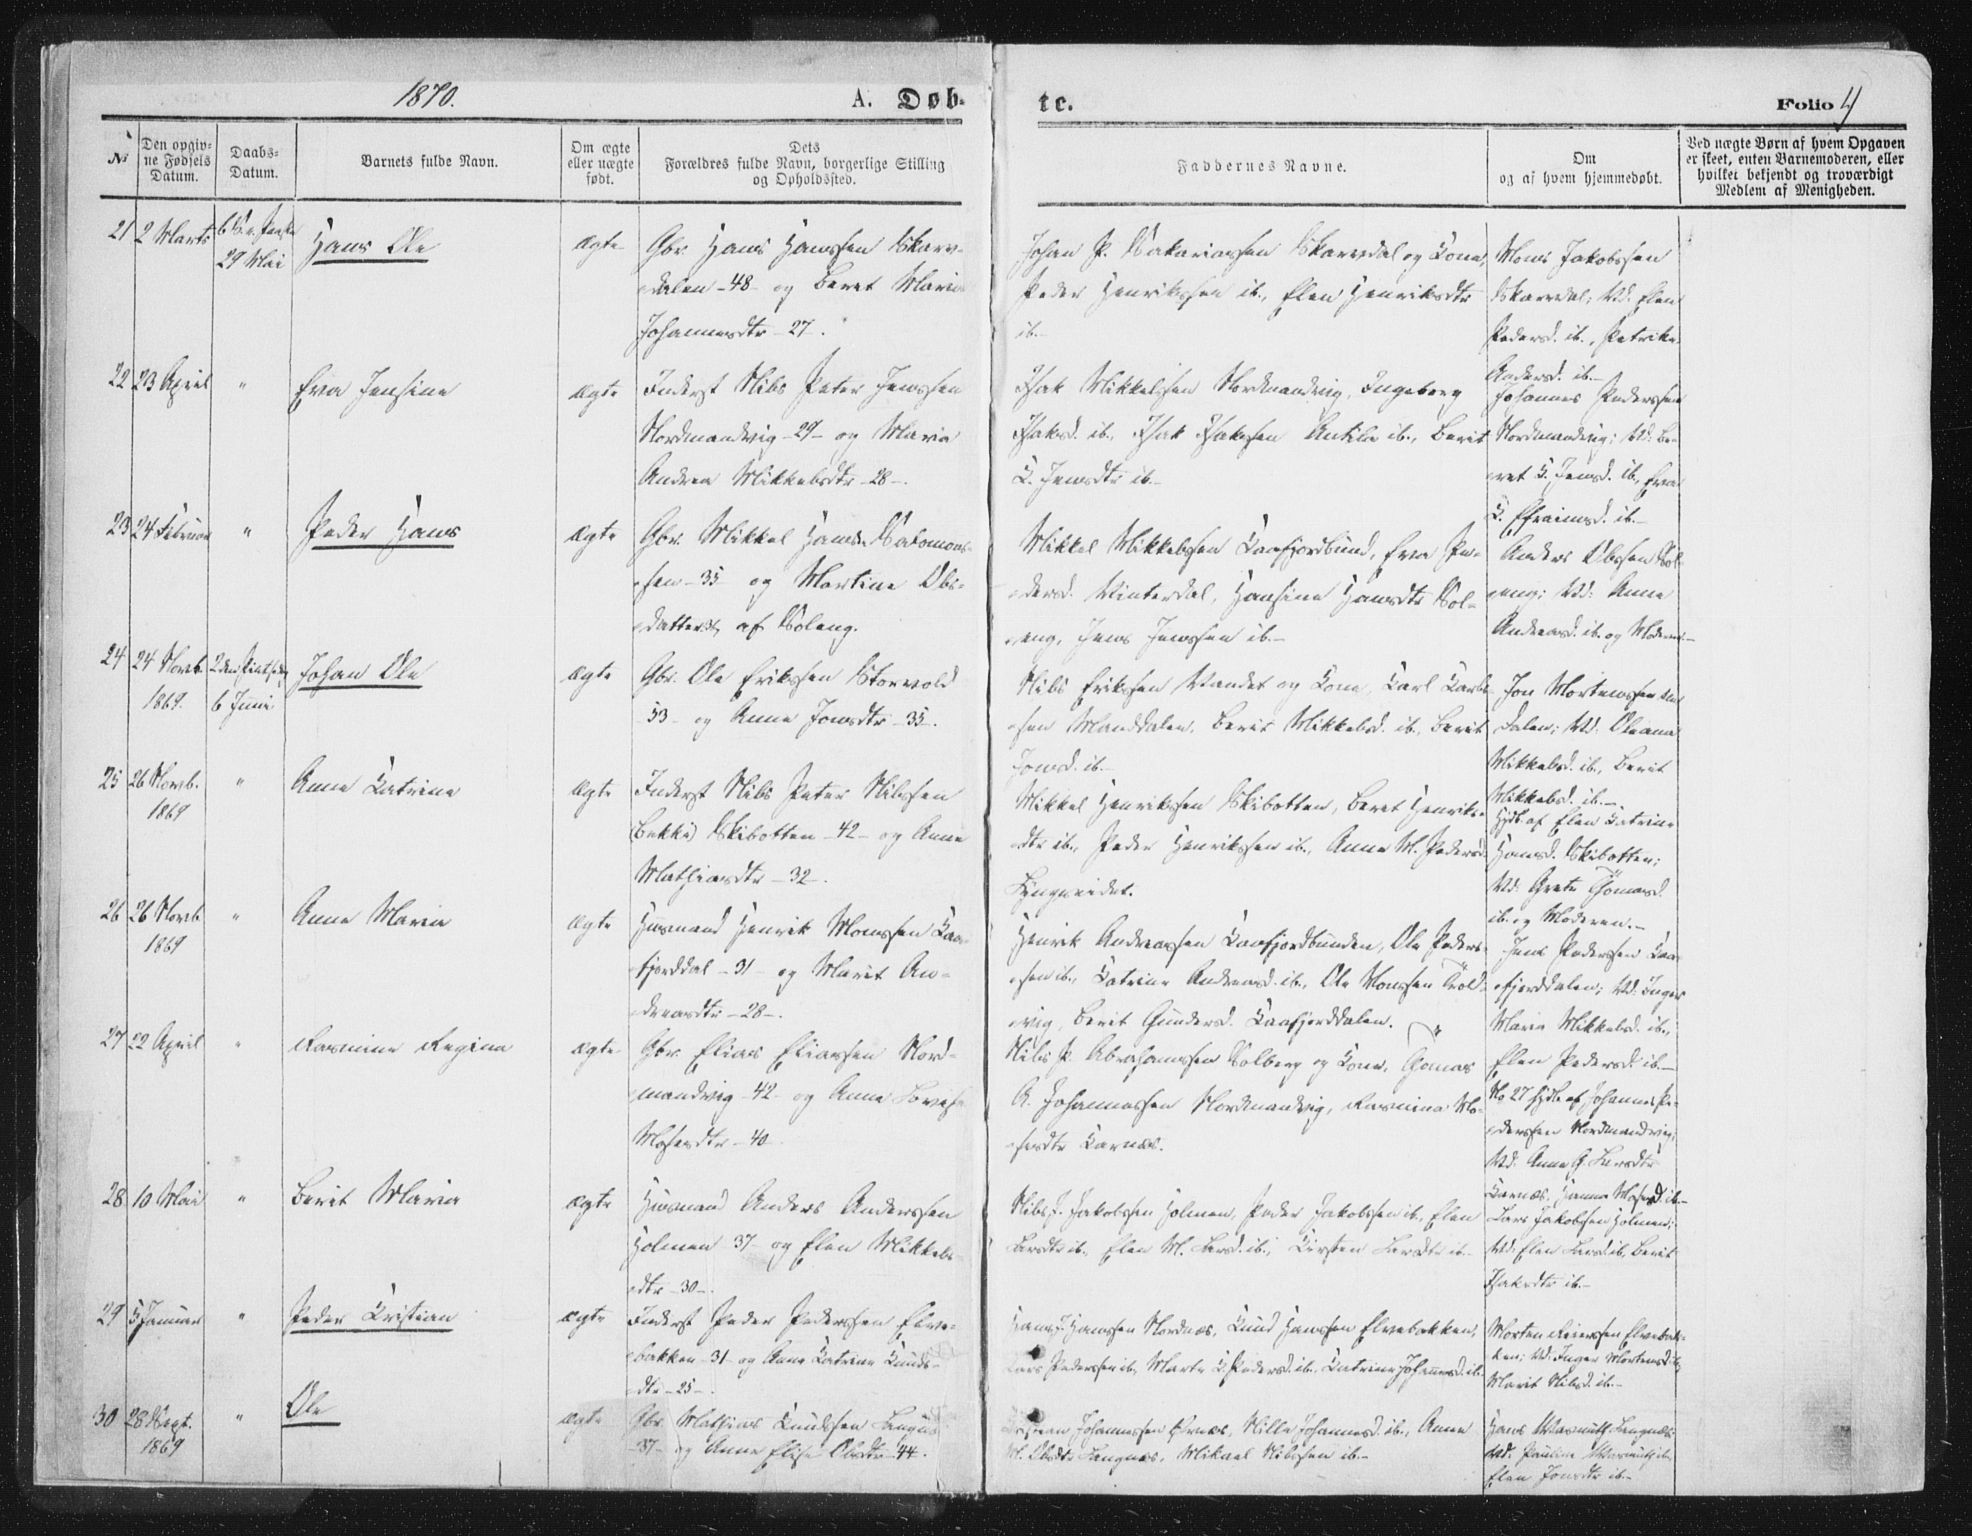 1870.
A. Døb-
te.
Folio 4
No
Den opgiv-
ne Fødsels
Datum.
Daabs-
Datum.
Barnets fulde Navn.
Om ægte
eller uægte
født.
Dets
Forældres fulde Navn, borgerlige Stilling
og Opholdssted.
Faddernes Navne.
Om
og af hvem hjemmedøbt.
Ved uægte Børn af hvem Opgaven
er skeet, enten Barnemoderen, eller
hvilket bekjendt og troværdigt
Medlem af Menigheden.
21 2 Marts
29 Mai
Hans Ole
ægte
Gbr. Hans Hanssen Skarv-
dalen -48- og Beret Maria
Johannesdtr -27-.
Johan P. Sakariassen Skarvdal og Kone,
Peder Henrikssen ib., Elen Henriksdtr
ib.-
Mons Jakobssen
Skarvdal; Vd. Elen
Pedersd. ib., Petrike
Andersd. ib.-
22 23 April "
Eva Jensine
ægte
Inderst Nils Peter Jenssen
Nordmandvig -29- og Maria
Andrea Mikkelsdtr -28-.
Isak Mikkelssen Nordmandvig, Ingeborg
Isaksd. ib., Isak Isakssen Antila ib., Berit
K. Jensdtr ib.-
Johannes Pederssen
Nordmandvig; Vd. Be-
ret K. Jensd. ib., Eva
K. Efraimsd. ib.-
23 24 Februar "
Peder Hans
ægte
Gbr. Mikkel Hans Salomons-
sen -35- og Martine Ols-
datter af Soleng.
Mikkel Mikkelssen Kaafjordbund, Eva Pe-
dersd. Vinterdal, Hansine Hansdtr Sol-
eng, Jens Jenssen ib.-
Anders Olssen Sol-
eng; Vd. Anne
Andreasd. ib. og Moderen.-
24 24 Novb.
1869.
2den Pintsedag
6 Juni
Johan Ole
ægte
Gbr. Ole Erikssen Storvold
53- og Anne Jonsdtr -35-.
Nils Erikssen Vandet og Kone, Karl Karls-
sen Manddalen, Berit Mikkelsd. ib., Berit
Jonsd. ib.-
Jon Mortenssen
dalen; Vd. Oleana
Mikkelsd. ib., Berit
Mikkelsd. ib.-
25 26 Novb.
1869
"
Anne Katrine
ægte
Inderst Nils Peter Nilssen
(Bekki) Skibotten -42- og Anne
Mathiasdtr -32-.
Mikkel Henrikssen Skibotten, Beret Henriks-
dtr ib., Peder Henrikssen ib., Anne M. Pedersd.
Lyngseidet.
Hjdb. af Elen Katrine
Hansd. Skibotten;
Vd. Grete Thomasd.
ib. og Moderen.-
26 26 Novb.
1869
"
Anne Maria
ægte
Husmand Henrik Monssen Kaa-
fjorddal -31- og Marit An-
dreasdtr -28-.
Henrik Andreassen Kaafjordbunden, Ole Peders-
sen ib., Katrine Andreasd. ib., Ole Monssen Trold-
vig, Berit Gundersd. Kaafjorddalen.
Jens Pederssen Kaa-
fjorddalen; Vd. Inger
Maria Mikkelsd. ib.,
Elen Pedersd. ib.-
27 22 April "
Rasmine Regina
ægte
Gbr. Elias Eliassen Nord-
mandvig -42- og Anne Lovise
Mosesdtr -40-
Nils P. Abrahamssen Solberg og Kone, Thomas
A. Johannessen Nordmandvig, Rasmine Mo-
sesdtr Karnæs.
No 27 hjdb. af Johannes Pe-
derssen Nordmandvig;
Vd. Anne G. Larsdtr
Karnæs. Hanna Mosesd. ib.-
28 10 Mai "
Berit Maria
ægte
Husmand Anders Anderssen
Holmen 37- og Elen Mikkels-
dtr -30-.
Nils J. Jakobssen Holmen, Peder Jakobssen ib., Elen
Larsdtr ib., Elen M. Larsd. ib., Kirsten Larsdtr ib.-
Lars Jakobssen Holmen;
Vd. Elen Larsd. ib., Berit
Isaksdtr ib.-
29 5 Januar "
Peder Kristian
ægte
Inderst Peder Pederssen Elve-
bakken -31- og Anne Katrine Knuds-
dtr -25-.
Hans J. Hanssen Nordnæs, Knud Hanssen Elvebakken,
Lars Pederssen ib., Marte K. Pedersd. ib., Katrine Johannesd. ib.
Morten Reierssen Elvebak-
ken; Vd. Inger Mortensd. ib.
Marit Nilsd. ib.-
30 28 Sept.
1869
"
Ole
ægte
Gbr. Mathias Knudssen Langnæs
-37- og Anne Elise Olsdtr -44-.
Kristian Johannessen Ørnæs, Nille Johannesd. ib., Anne
M. Olsdtr Langnæs, Mikael Nilssen ib.-
Hans Wasmuth Langnæs;
Vd. Pauline Wasmuth ib.
Elen Jonsdtr ib.-